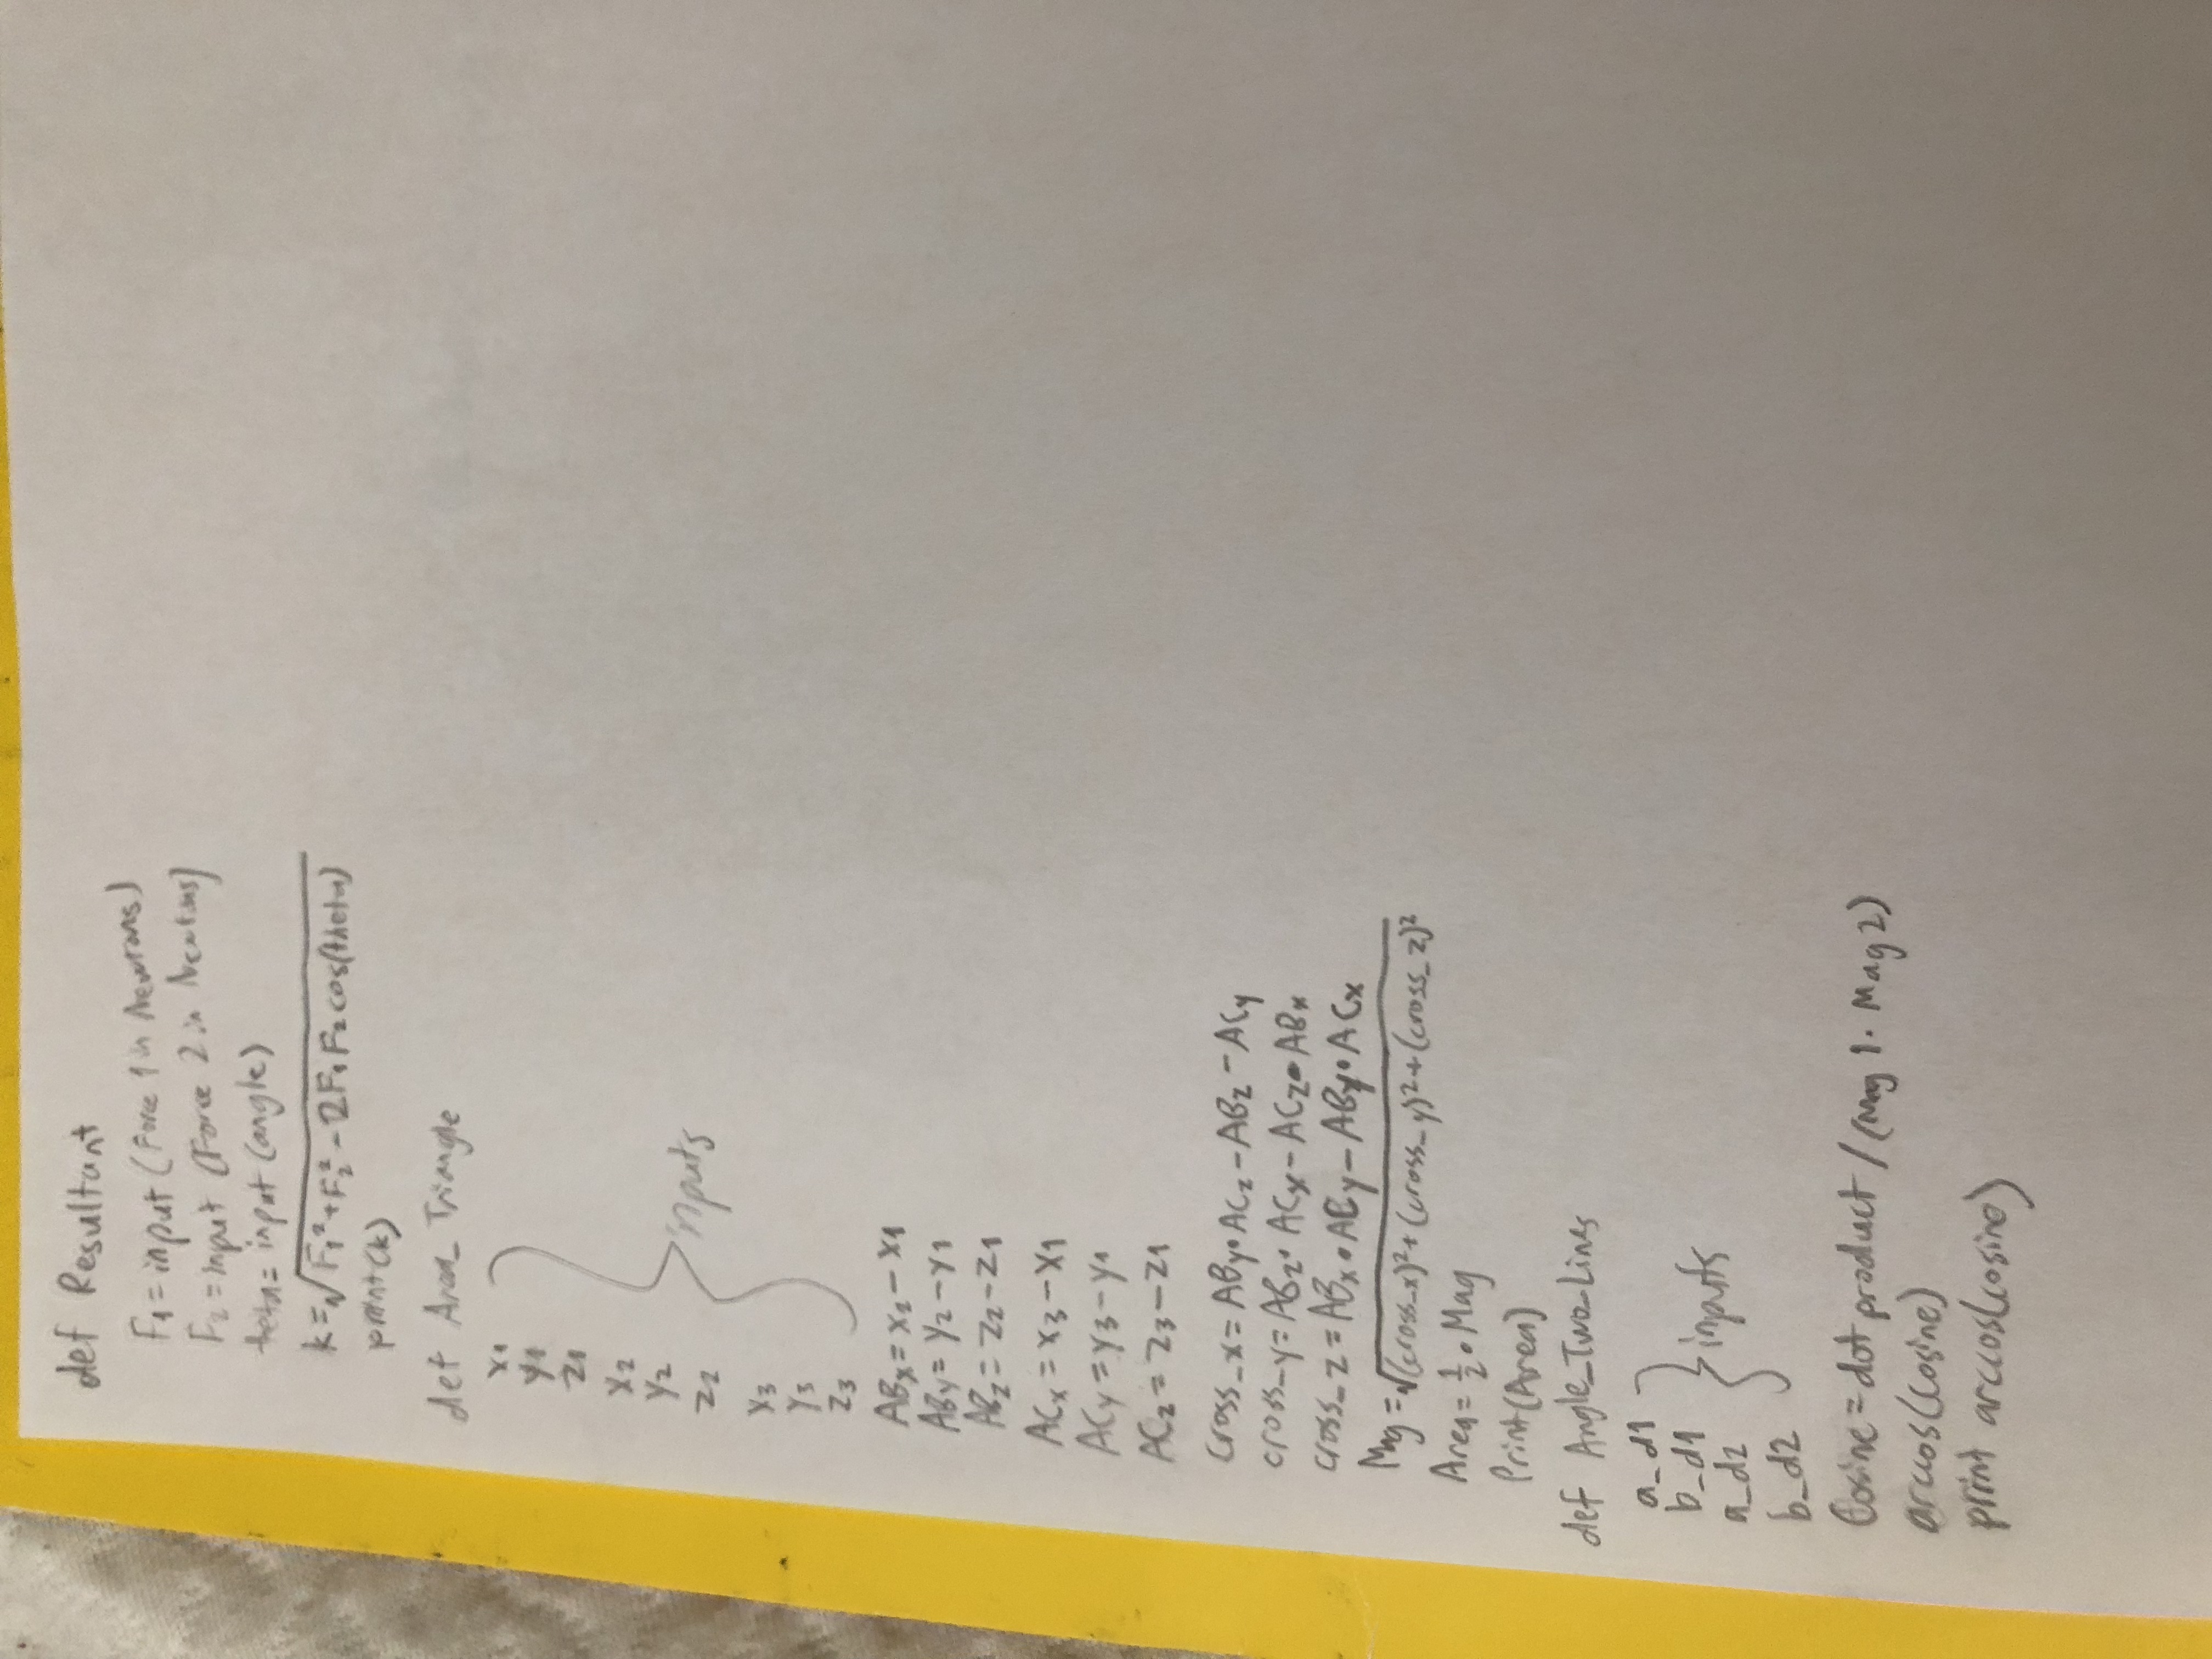 def Resultant
F₁ = input (Force 1 in Newtons)
F₂ = input (Force 2 in Newtons)
theta = input (angle)
k = √(F₁² + F₂² - 2F₁F₂cos(theta))
print(k)
def Area_Triangle
x₁
y₁
z₁
x₂
y₂
z₂
inputs
x₃
y₃
z₃
ABx = x₂ - x₁
ABy = y₂ - y₁
ABz = z₂ - z₁
ACx = x₃ - x₁
ACy = y₃ - y₁
ACz = z₃ - z₁
cross_x = ABy • ACz - ABz - ACy
cross_y = ABz • ACx - ACz • ABx
cross_z = ABx • ACy - ABy • ACx
Mag = √((cross_x)² + (cross_y)² + (cross_z)²
Area = ½ • Mag
Print(Area)
def Angle_Two_Lines
a_d1
b_d1
inputs
a_d2
b_d2
Cosine = dot product / (Mag 1 • Mag 2)
arccos(Cosine)
print arccos(cosine)